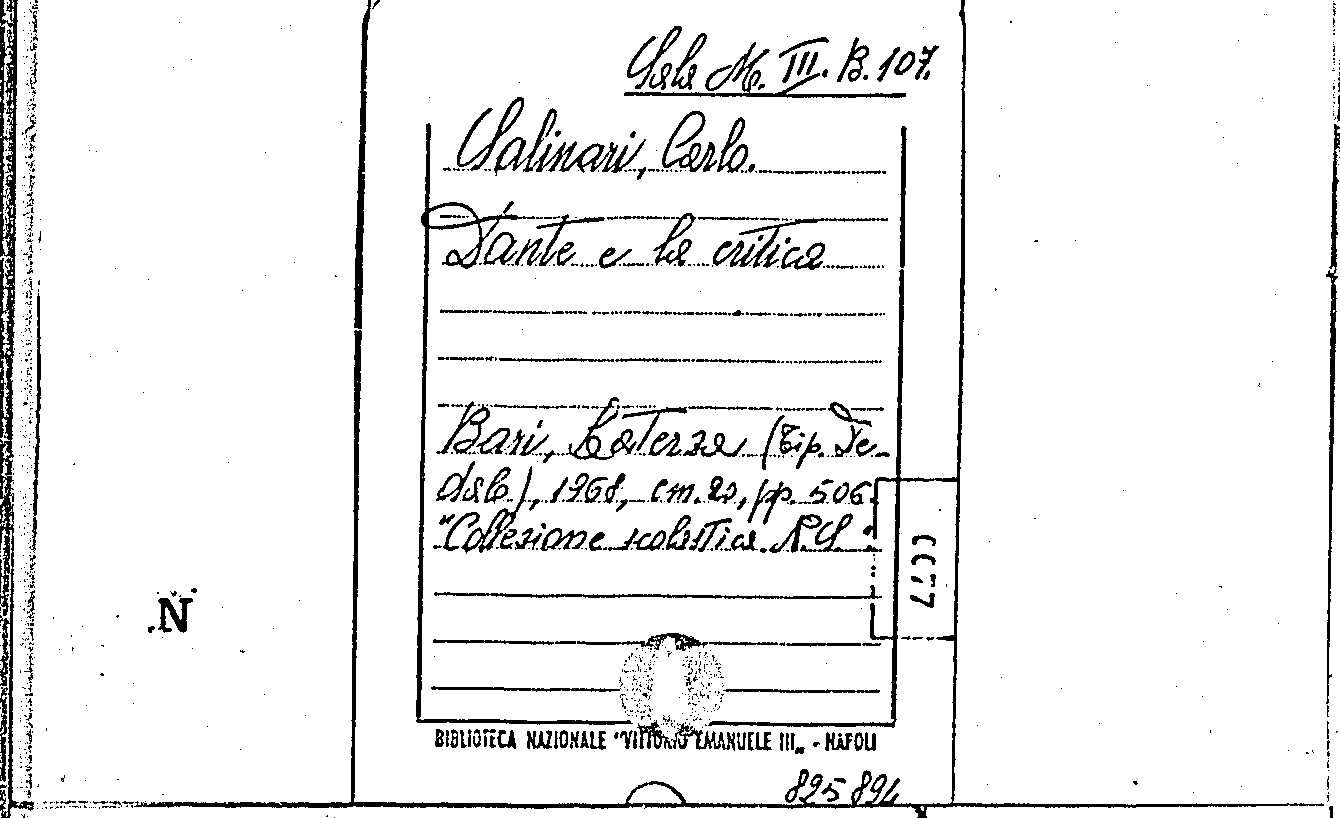 Sala M. III. B. 107.
Salinari, Carlo.
Dante e la critica
Bari, Laterza (Tip. De-
dalo), 1968, cm. 20, pp. 506.
"Collezione scolastica N.S.".
0077
N
BIBLIOTECA NAZIONALE "VITTORIO EMANUELE III„ - NAPOLI
825894